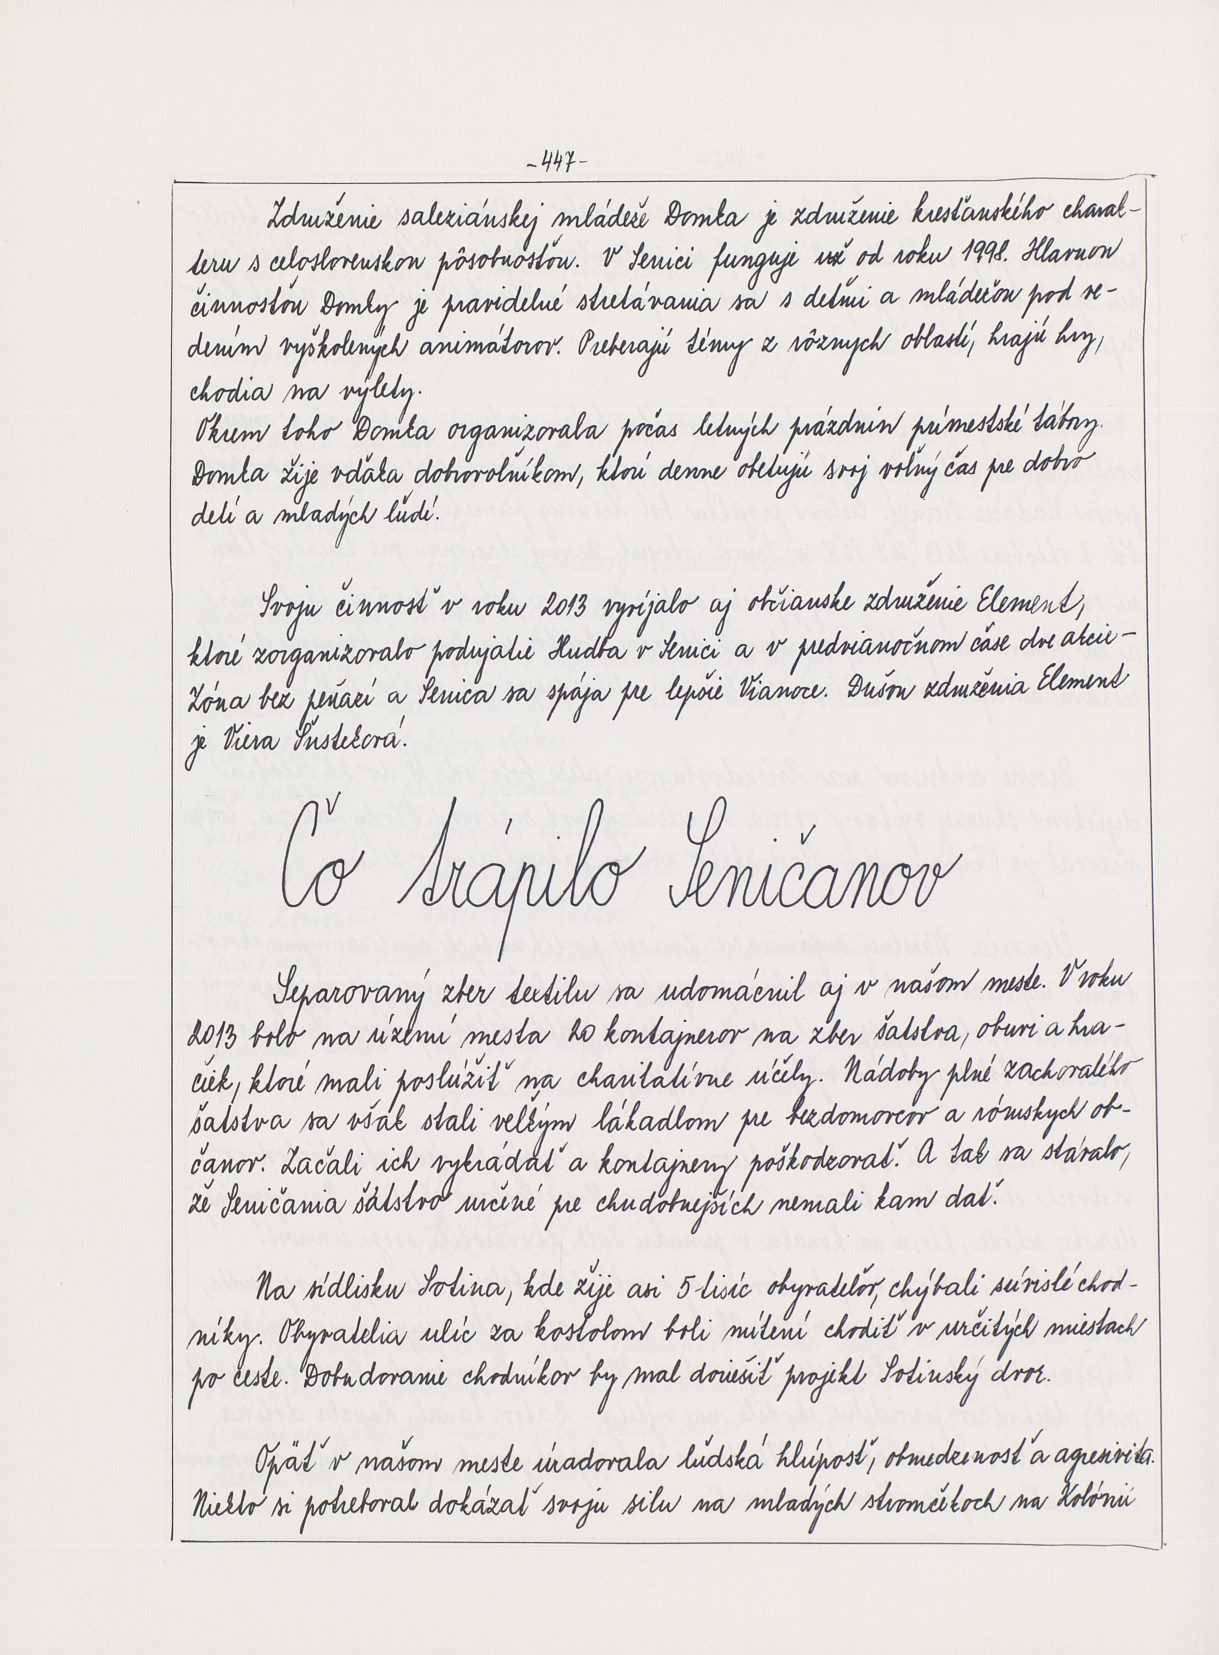 -447-
Združenie saleziánskej mládeže Domka je združenie kresťanského charak-
teru s celoslovenskou pôsobnosťou. V Senici funguje už od roku 1998. Hlavnou
činnosťou Domky je pravidelné stretávania sa s deťmi a mládežou pod ve-
dením vyškolených animátorov. Preberajú témy z rôznych oblastí, hrajú hry,
chodia na výlety.
Okrem toho Domka organizovala počas letných prázdnin prímestské tábory.
Domka žije vďaka dobrovoľníkom, ktorí denne obetujú svoj voľný čas pre dobro
detí a mladých ľudí.
Svoju činnosť v roku 2013 vyvíjalo aj občianske združenie Element,
ktoré zorganizovalo podujatie Hudba v Senici a v predvianočnom čase dve akcie-
Zóna bez peňazí a Senica sa spája pre lepšie Vianoce. Dušou združenia Element
je Viera Šusteková.
Čo trápilo Seničanov
Separovaný zber textilu sa udomácnil aj v našom meste. V roku
2013 bolo na území mesta 20 kontajnerov na zber šatstva, obuvi a hra-
čiek, ktoré mali poslúžiť na charitatívne účely. Nádoby plné zachovalého
šatstva sa však stali veľkým lákadlom pre bezdomovcov a rómskych ob-
čanov. Začali ich vykrádať a kontajnery poškodzovať. A tak sa stávalo,
že Seničania šatstvo určené pre chudobnejších nemali kam dať.
Na sídlisku Sotina, kde žije asi 5 tisíc obyvateľov, chýbali súvislé chod-
níky. Obyvatelia ulíc za kostolom boli nútení chodiť v určitých miestach
po ceste. Dobudovanie chodníkov by mal doriešiť projekt Sotinský dvor.
Opäť v našom meste úradovala ľudská hlúposť, obmedzenosť a agresivita.
Niekto si potreboval dokázať svoju silu na mladých stromčekoch na Kolónii